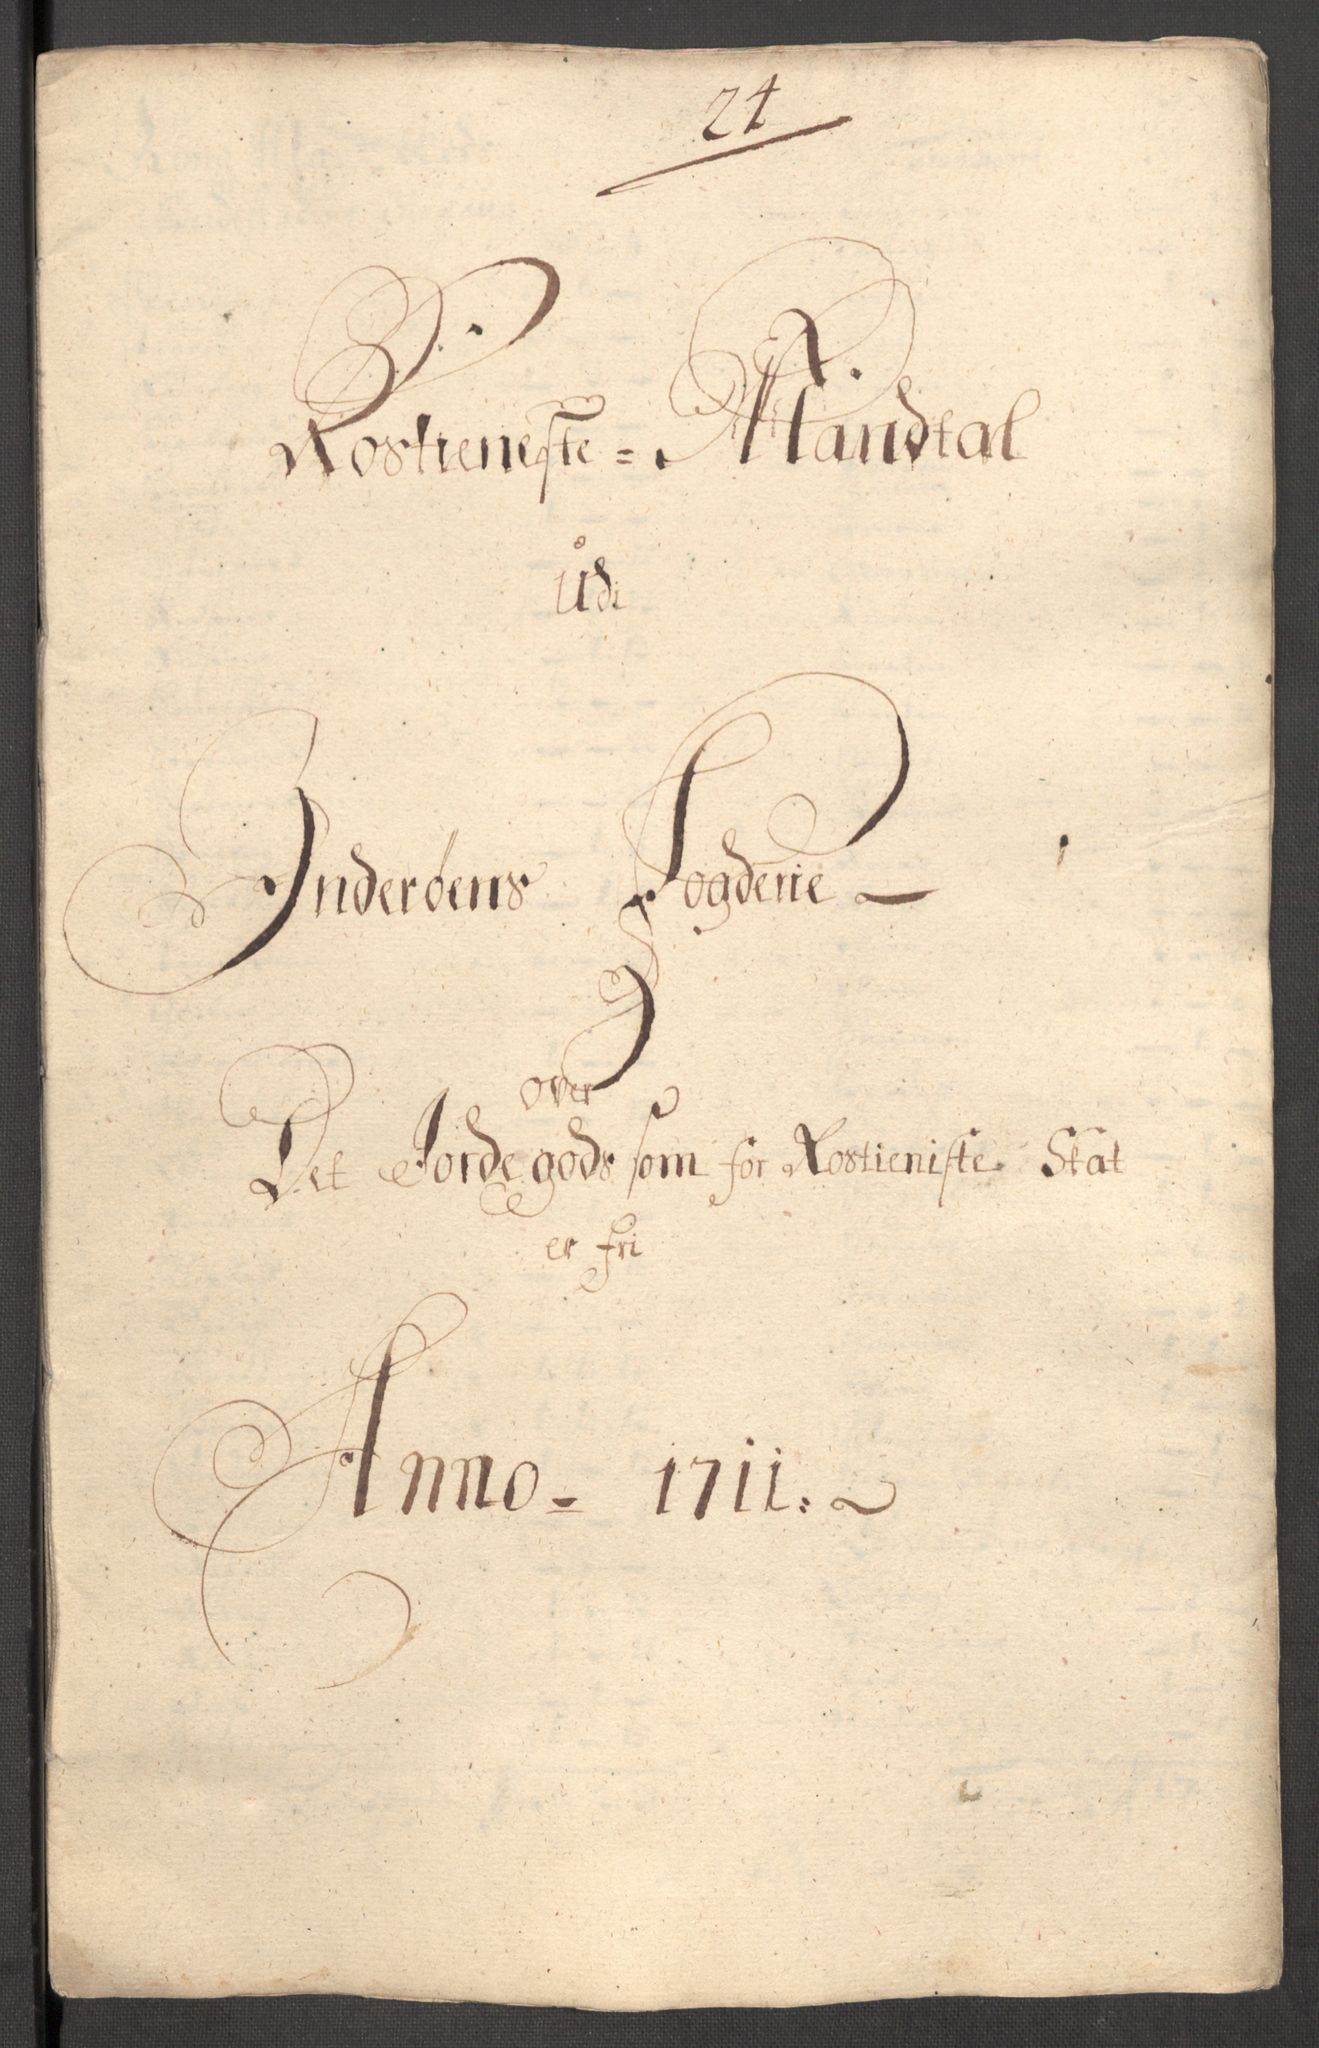 24
Rostieneste = Mandtal
Udi
Inderøens Fogderie
over
Det Jordegods som for Rostieniste Skat
er fri
Anno = 1711.